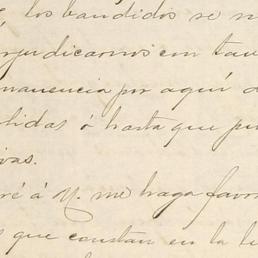 los bandidos se
judicarnos con tan
manencia por aquí
didas ó hasta que pu
ivas.
ré á V. me haga favor
que constan en la li